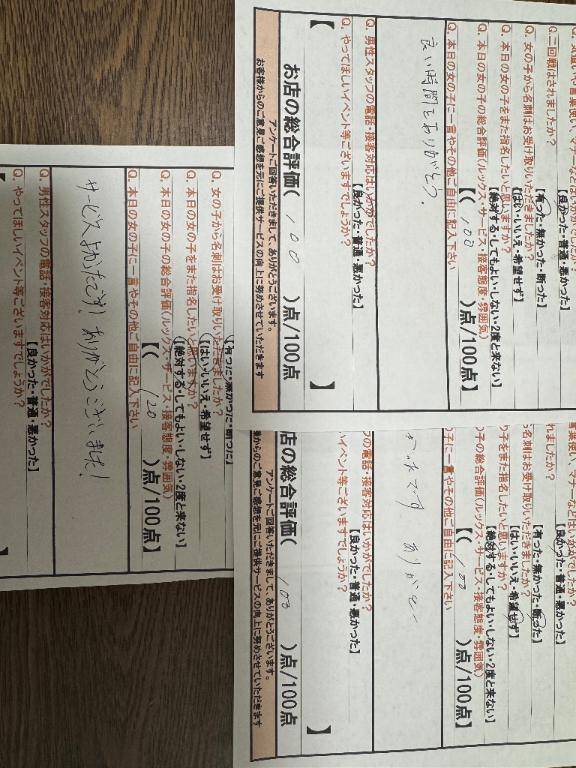 Q. 二回戦はされましたか？
【良かった・普通・悪かった】
Q. 女の子から名刺はお受け取りいただきましたか？
【有った・無かった・断った】
Q. 本日の女の子をまた指名したいと思いますか？
【はい・いいえ・希望せず】
【絶対する・してもよい・しない・2度と来ない】
Q. 本日の女の子の総合評価（ルックス・サービス・接客態度・雰囲気）
【（ 100 ）点/100点】
Q. 本日の女の子に一言やその他ご自由に記入下さい
良い時間をありがとう。
Q. 男性スタッフの電話・接客対応はいかがでしたか？
【良かった・普通・悪かった】
Q. やってほしいイベント等ございますでしょうか？
【 】
お店の総合評価（ 100 ）点/100点
アンケートご回答いただきまして、ありがとうございます。
お客様からのご意見ご感想を元にご提供サービスの向上に努めさせていただきます
れましたか？
【良かった・普通・悪かった】
ら名刺はお受け取りいただきましたか？
【有った・無かった・断った】
の子をまた指名したいと思いますか？
【はい・いいえ・希望せず】
【絶対する・してもよい・しない・2度と来ない】
の子の総合評価（ルックス・サービス・接客態度・雰囲気）
【（ 100 ）点/100点】
の子に一言やその他ご自由に記入下さい
ったです ありがとう
フの電話・接客対応はいかがでしたか？
【良かった・普通・悪かった】
いイベント等ございますでしょうか？
】
店の総合評価（ 100 ）点/100点
アンケートご回答いただきまして、ありがとうございます。
様からのご意見ご感想を元にご提供サービスの向上に努めさせていただきます
【有った・無かった・断った】
Q. 女の子から名刺はお受け取りいただきましたか？
【はい・いいえ・希望せず】
Q. 本日の女の子をまた指名したいと思いますか？
【絶対する・してもよい・しない・2度と来ない】
Q. 本日の女の子の総合評価（ルックス・サービス・接客態度・雰囲気）
【（ 120 ）点/100点】
Q. 本日の女の子に一言やその他ご自由に記入下さい
サービスよかったです！ありがとうございました！
Q. 男性スタッフの電話・接客対応はいかがでしたか？
【良かった・普通・悪かった】
Q. やってほしいイベント等ございますでしょうか？